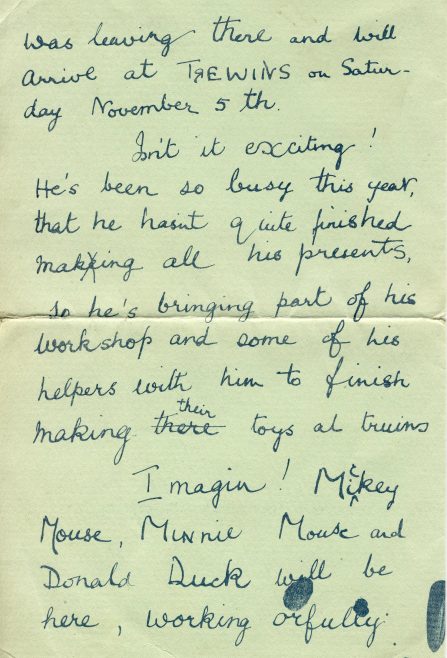 was leaving there and will
arrive at TREWINS on Satur-
day November 5 th.
Isn't it exciting!
He's been so busy this year,
that he hasnt quite finished
making all his presents,
so he's bringing part of his
workshop and some of his
helpers with him to finish
making there their toys at truins
Imagin! Mickey
Mouse, Minnie Mouse and
Donald Duck will be
here, working orfully